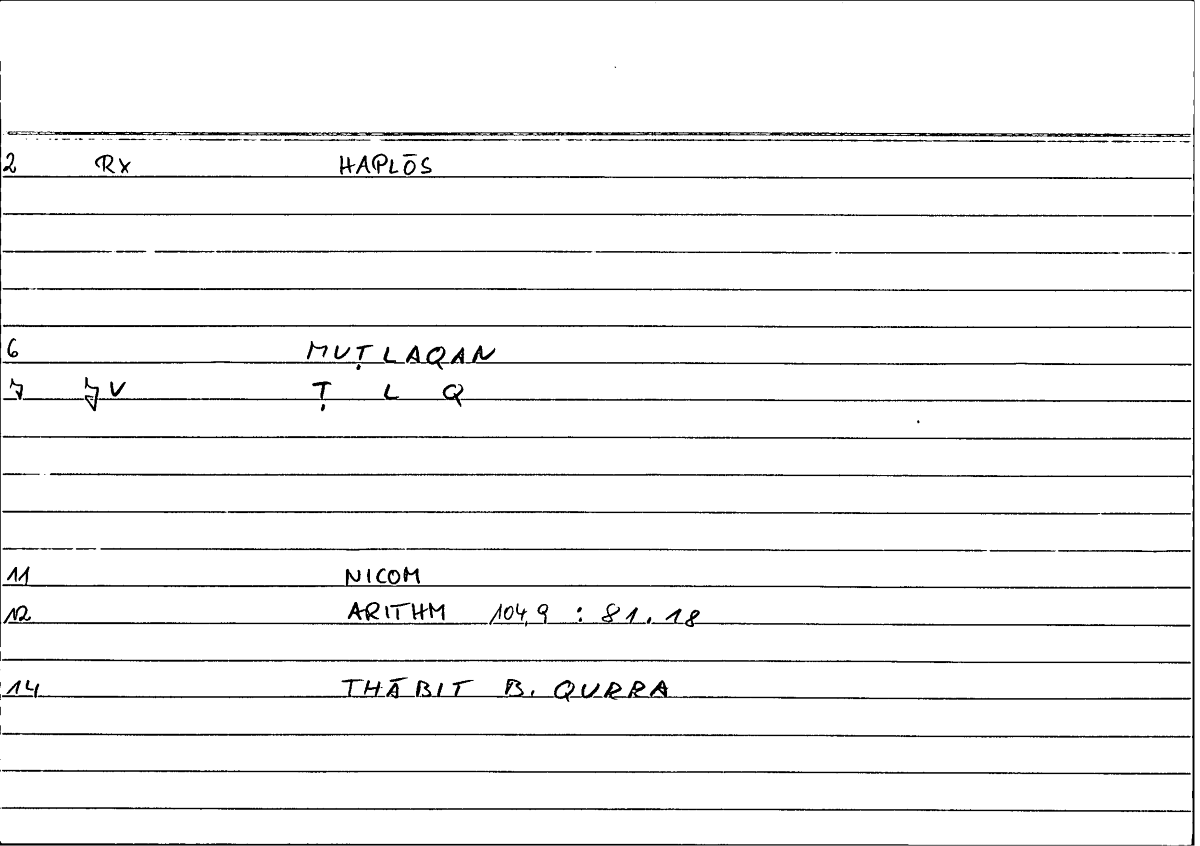 2 Rx HAPLŌS
6 MUṬLAQAN
7 V Ṭ L Q
11 NICOM
12 ARITHM 104,9 : 81.18
14 THĀBIT B. QURRA